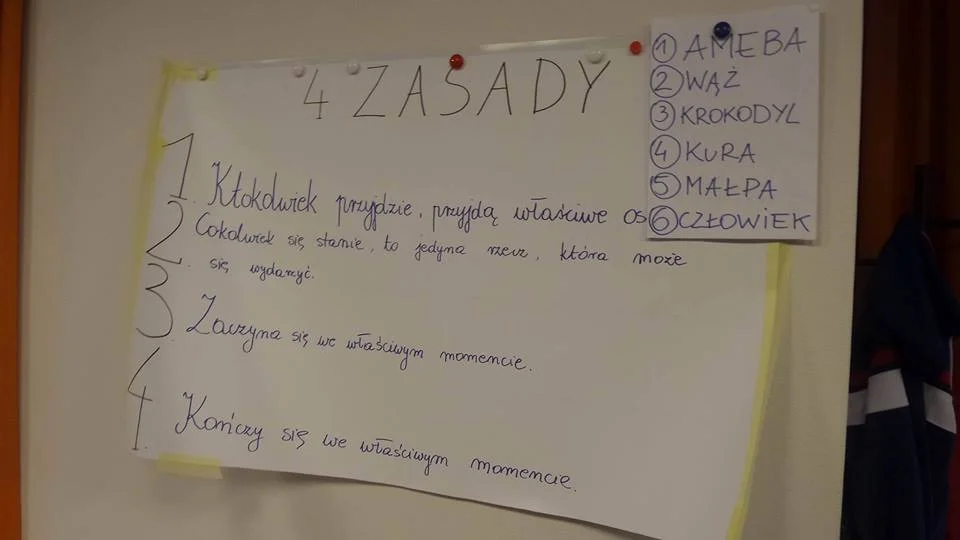 4 ZASADY
1. Ktokolwiek przyjdzie, przyjdą właściwe os
2. Cokolwiek się stanie, to jedyna rzecz, która może
się wydarzyć.
3. Zaczyna się we właściwym momencie.
4. Kończy się we właściwym momencie.
1 AMEBA
2 WĄŻ
3 KROKODYL
4 KURA
5 MAŁPA
6 CZŁOWIEK